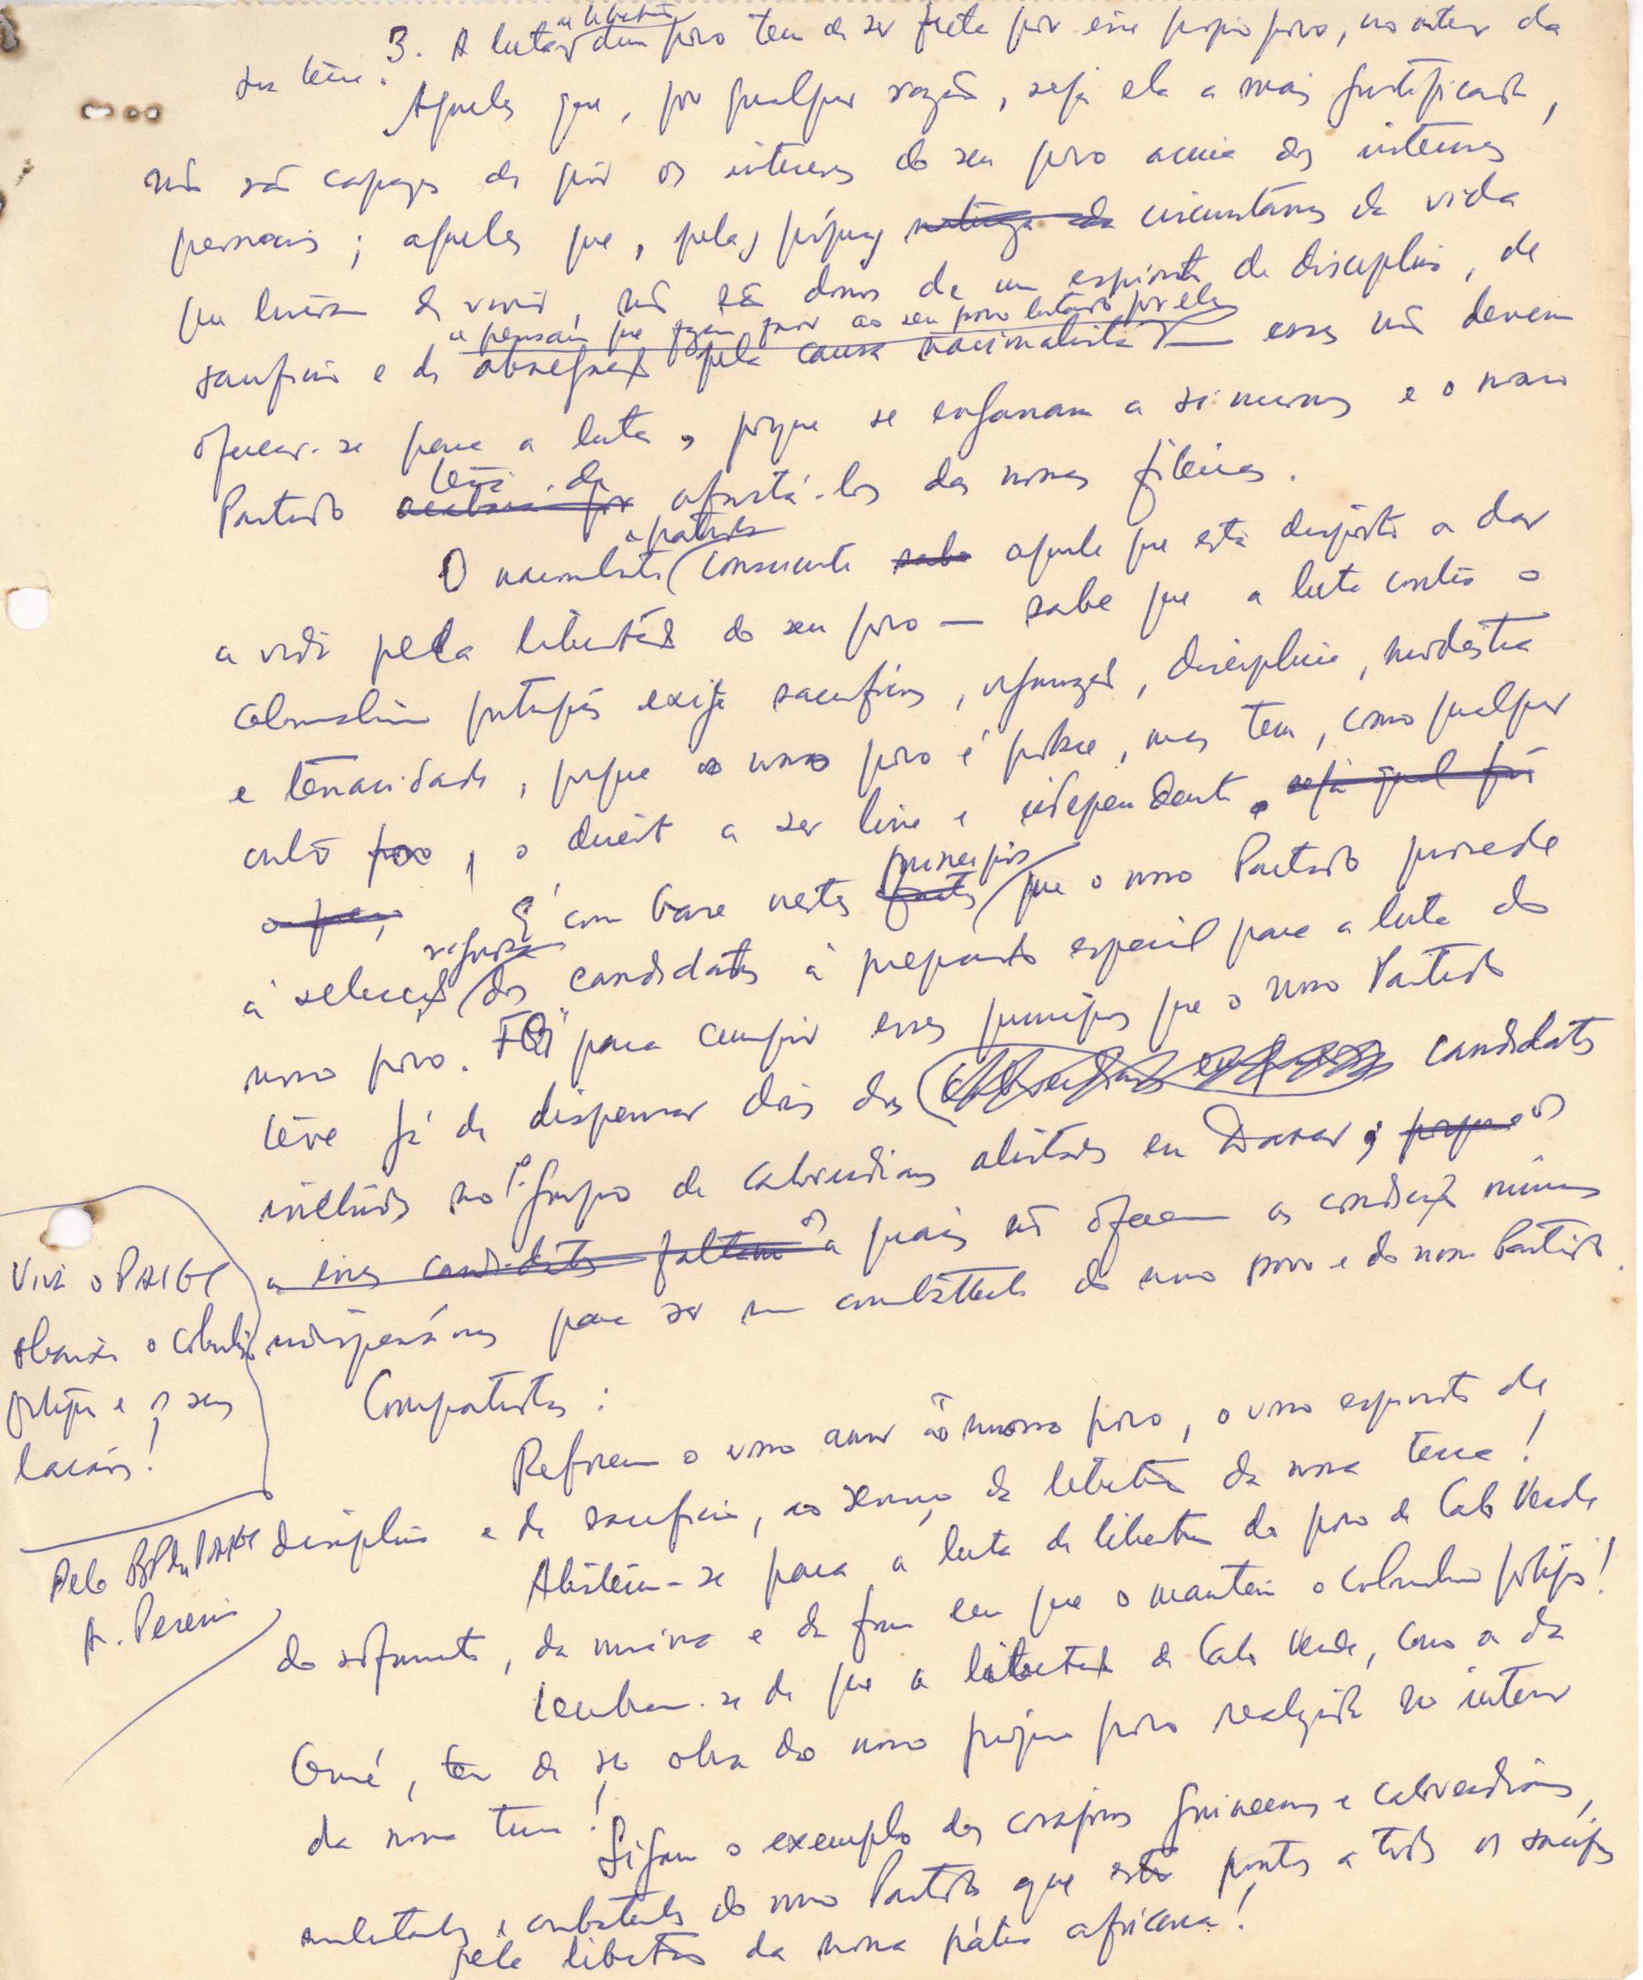 3. A luta de libertação dum povo tem de ser feita por esse próprio povo, no interior da
sua terra.
Aqueles que, por qualquer razão, seja ela a mais justificada,
não são capazes de pôr os interesses do seu povo acima dos interesses
pessoais; aqueles que, pelas próprias circunstâncias da vida
que tiveram de viver, não são donos de um espírito de disciplina, de
e pensam que fazem favor ao seu povo lutando por ele
sacrifício e de abnegação pela causa nacionalista — esses não devem
oferecer-se para a luta, porque se enganam a si mesmos e o nosso
Partido terá de afastá-los das nossas fileiras.
O nacionalista e patriota consciente aquele que está disposto a dar
a vida pela libertação do seu povo — sabe que a luta contra o
colonialismo português exige sacrifícios, organização, disciplina, modéstia
e tenacidade, porque o nosso povo é pobre, mas tem, como qualquer
outro povo, o direito a ser livre e independente, seja qual for
o preço. É com base nestes princípios que o nosso Partido procede
à selecção rigorosa dos candidatos à preparação especial para a luta do
nosso povo. Foi para cumprir esses princípios que o nosso Partido
teve já de dispensar dois dos candidatos
incluídos no 1º grupo de caboverdianos alistados em Dakar, porque
a esses candidatos faltam os quais não oferecem as condições mínimas
indispensáveis para ser um combatente do nosso povo e do nosso Partido.
Compatriotas:
Reforcem o vosso amor ao nosso povo, o vosso espírito de
disciplina e de sacrifício, ao serviço da libertação da nossa terra!
Alistem-se para a luta de libertação do povo de Cabo Verde
do sofrimento, da miséria e da fome em que o mantém o colonialismo português!
Lembrem-se de que a libertação de Cabo Verde, como a da
Guiné, tem de ser obra do nosso próprio povo realizada no interior
da nossa terra!
Sigam o exemplo dos corajosos guineenses e caboverdianos,
militantes e combatentes do nosso Partido que estão prontos a todos os sacrifícios
pela libertação da nossa pátria africana!
Viva o PAIGC
Abaixo o colonialismo
português e os seus
lacaios!
Pelo BP do PAIGC
A. Pereira